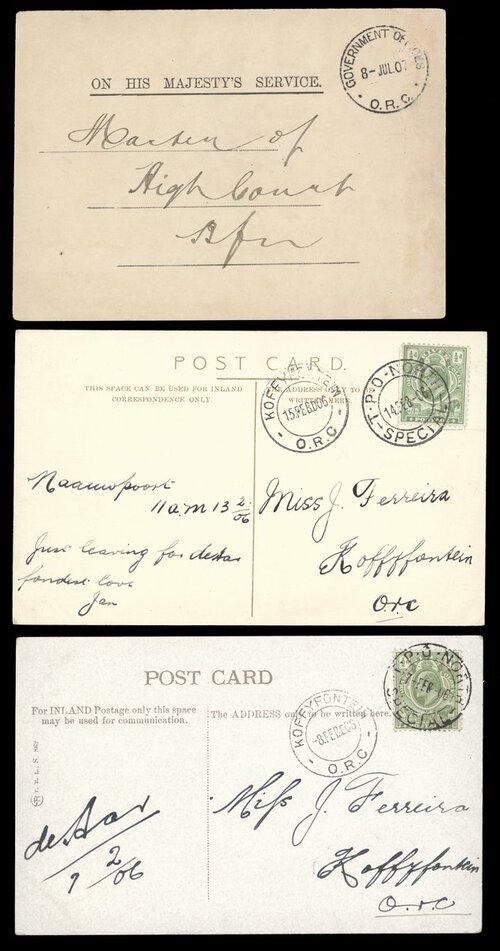 GOVERNMENT OFFICES
8-JUL07
O.R.C.
ON HIS MAJESTY'S SERVICE.
Master of
High Court
Bfn
POST CARD.
THIS SPACE CAN BE USED FOR INLAND
CORRESPONDENCE ONLY.
THE ADDRESS ONLY TO BE
WRITTEN HERE.
KOFFYFONTEIN
15.FEB.06
O.R.C
T.P.O-NORTH
SPECIAL
½d
½d
Naauwpoort
11 a.m 13 2/06
Just leaving for deAar
fondest love
Jan
Miss J. Ferreira
Koffyfontein
Orc
POST CARD
For INLAND Postage only this space
may be used for communication.
The ADDRESS only to be written here.
KOFFYFONTEIN
-8.FEB.06
O.R.C
P.O-NORTH
SPECIAL
de Aar
7 2/06
Miss J. Ferreira
Koffyfontein
O.r.c